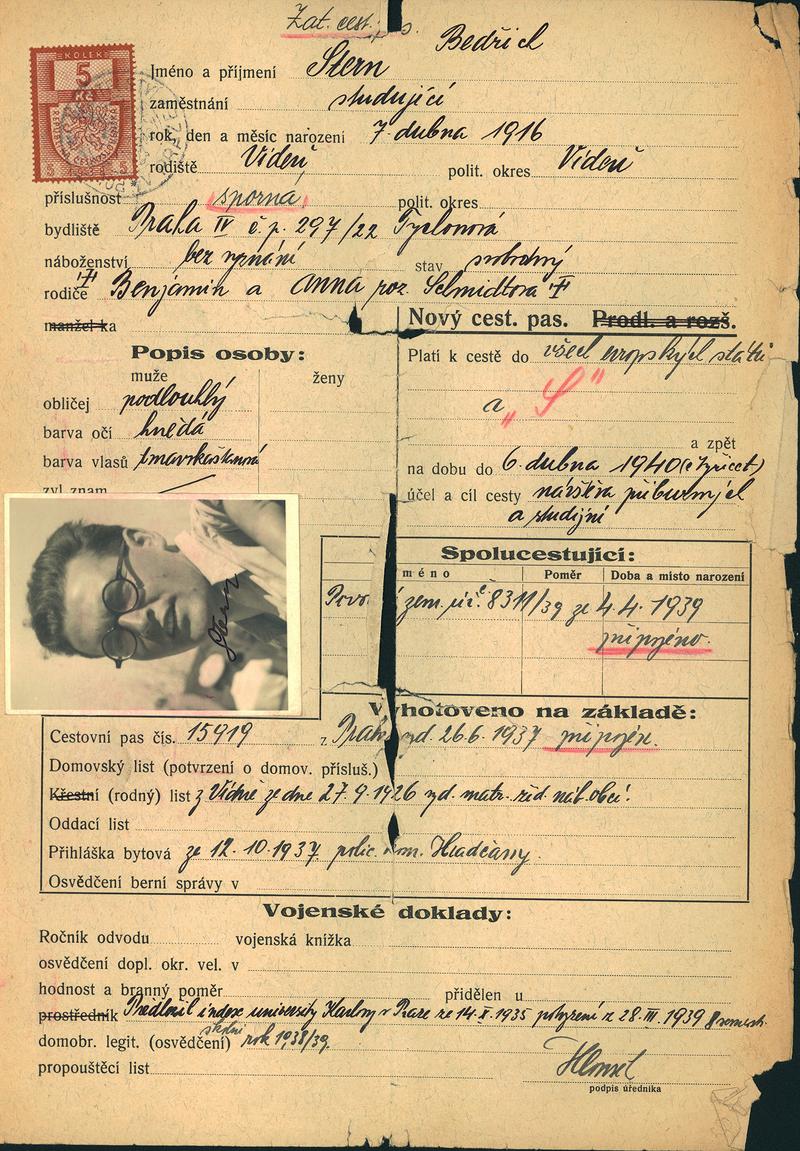 Zat. cest. p.
Bedřich
KOLEK
5
Jméno a příjmení Stern
zaměstnání studující
rok, den a měsíc narození 7. dubna 1916
rodiště Vídeň polit. okres Vídeň
příslušnost sporná polit. okres
bydliště Praha IV č.p. 297/22
náboženství bez vyznání stav svobodný
rodiče Benjamin a Anna roz. Schmidtová
manžel-ka
Nový cest. pas. Prodl. a rozš.
Popis osoby:
muže ženy
obličej podlouhlý
barva očí hnědá
barva vlasů tmavokaštanová
zvl. znam.
Platí k cestě do všech evropských států
a „S“
a zpět
na dobu do 6. dubna 1940 (čtyřicet)
účel a cíl cesty návštěva příbuzných
a studijní
Stern
Spolucestující:
méno Poměr Doba a místo narození
Povo zem. úř. č. 8311/39 ze 4.4.1939
připojeno.
Vyhotoveno na základě:
Cestovní pas čís. 15919 z Prahy zd. 26.6.1937 připoje.
Domovský list (potvrzení o domov. přísluš.)
Křestní (rodný) list z Vídně ze dne 27.9.1926 vyd. matr. žid. náb. obcí.
Oddací list
Přihláška bytová ze 12.10.1937 polic. kom. Hradčany.
Osvědčení berní správy v
Vojenské doklady:
Ročník odvodu vojenská knížka
osvědčení dopl. okr. vel. v
hodnost a branný poměr přidělen u
prostředník Předložil index university Karlovy v Praze ze 14.X.1935 potvrzení z 28.III.1939 8 semestr.
domobr. legit. (osvědčení) školní rok 1938/39.
propouštěcí list
podpis úředníka